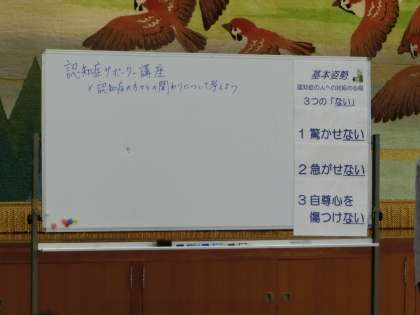 認知症サポーター講座
× 認知症の方々との関わりについて考えよう
基本姿勢
認知症の人への対応の心得
3つの「ない」
1 驚かせない
2 急がせない
3 自尊心を
傷つけない